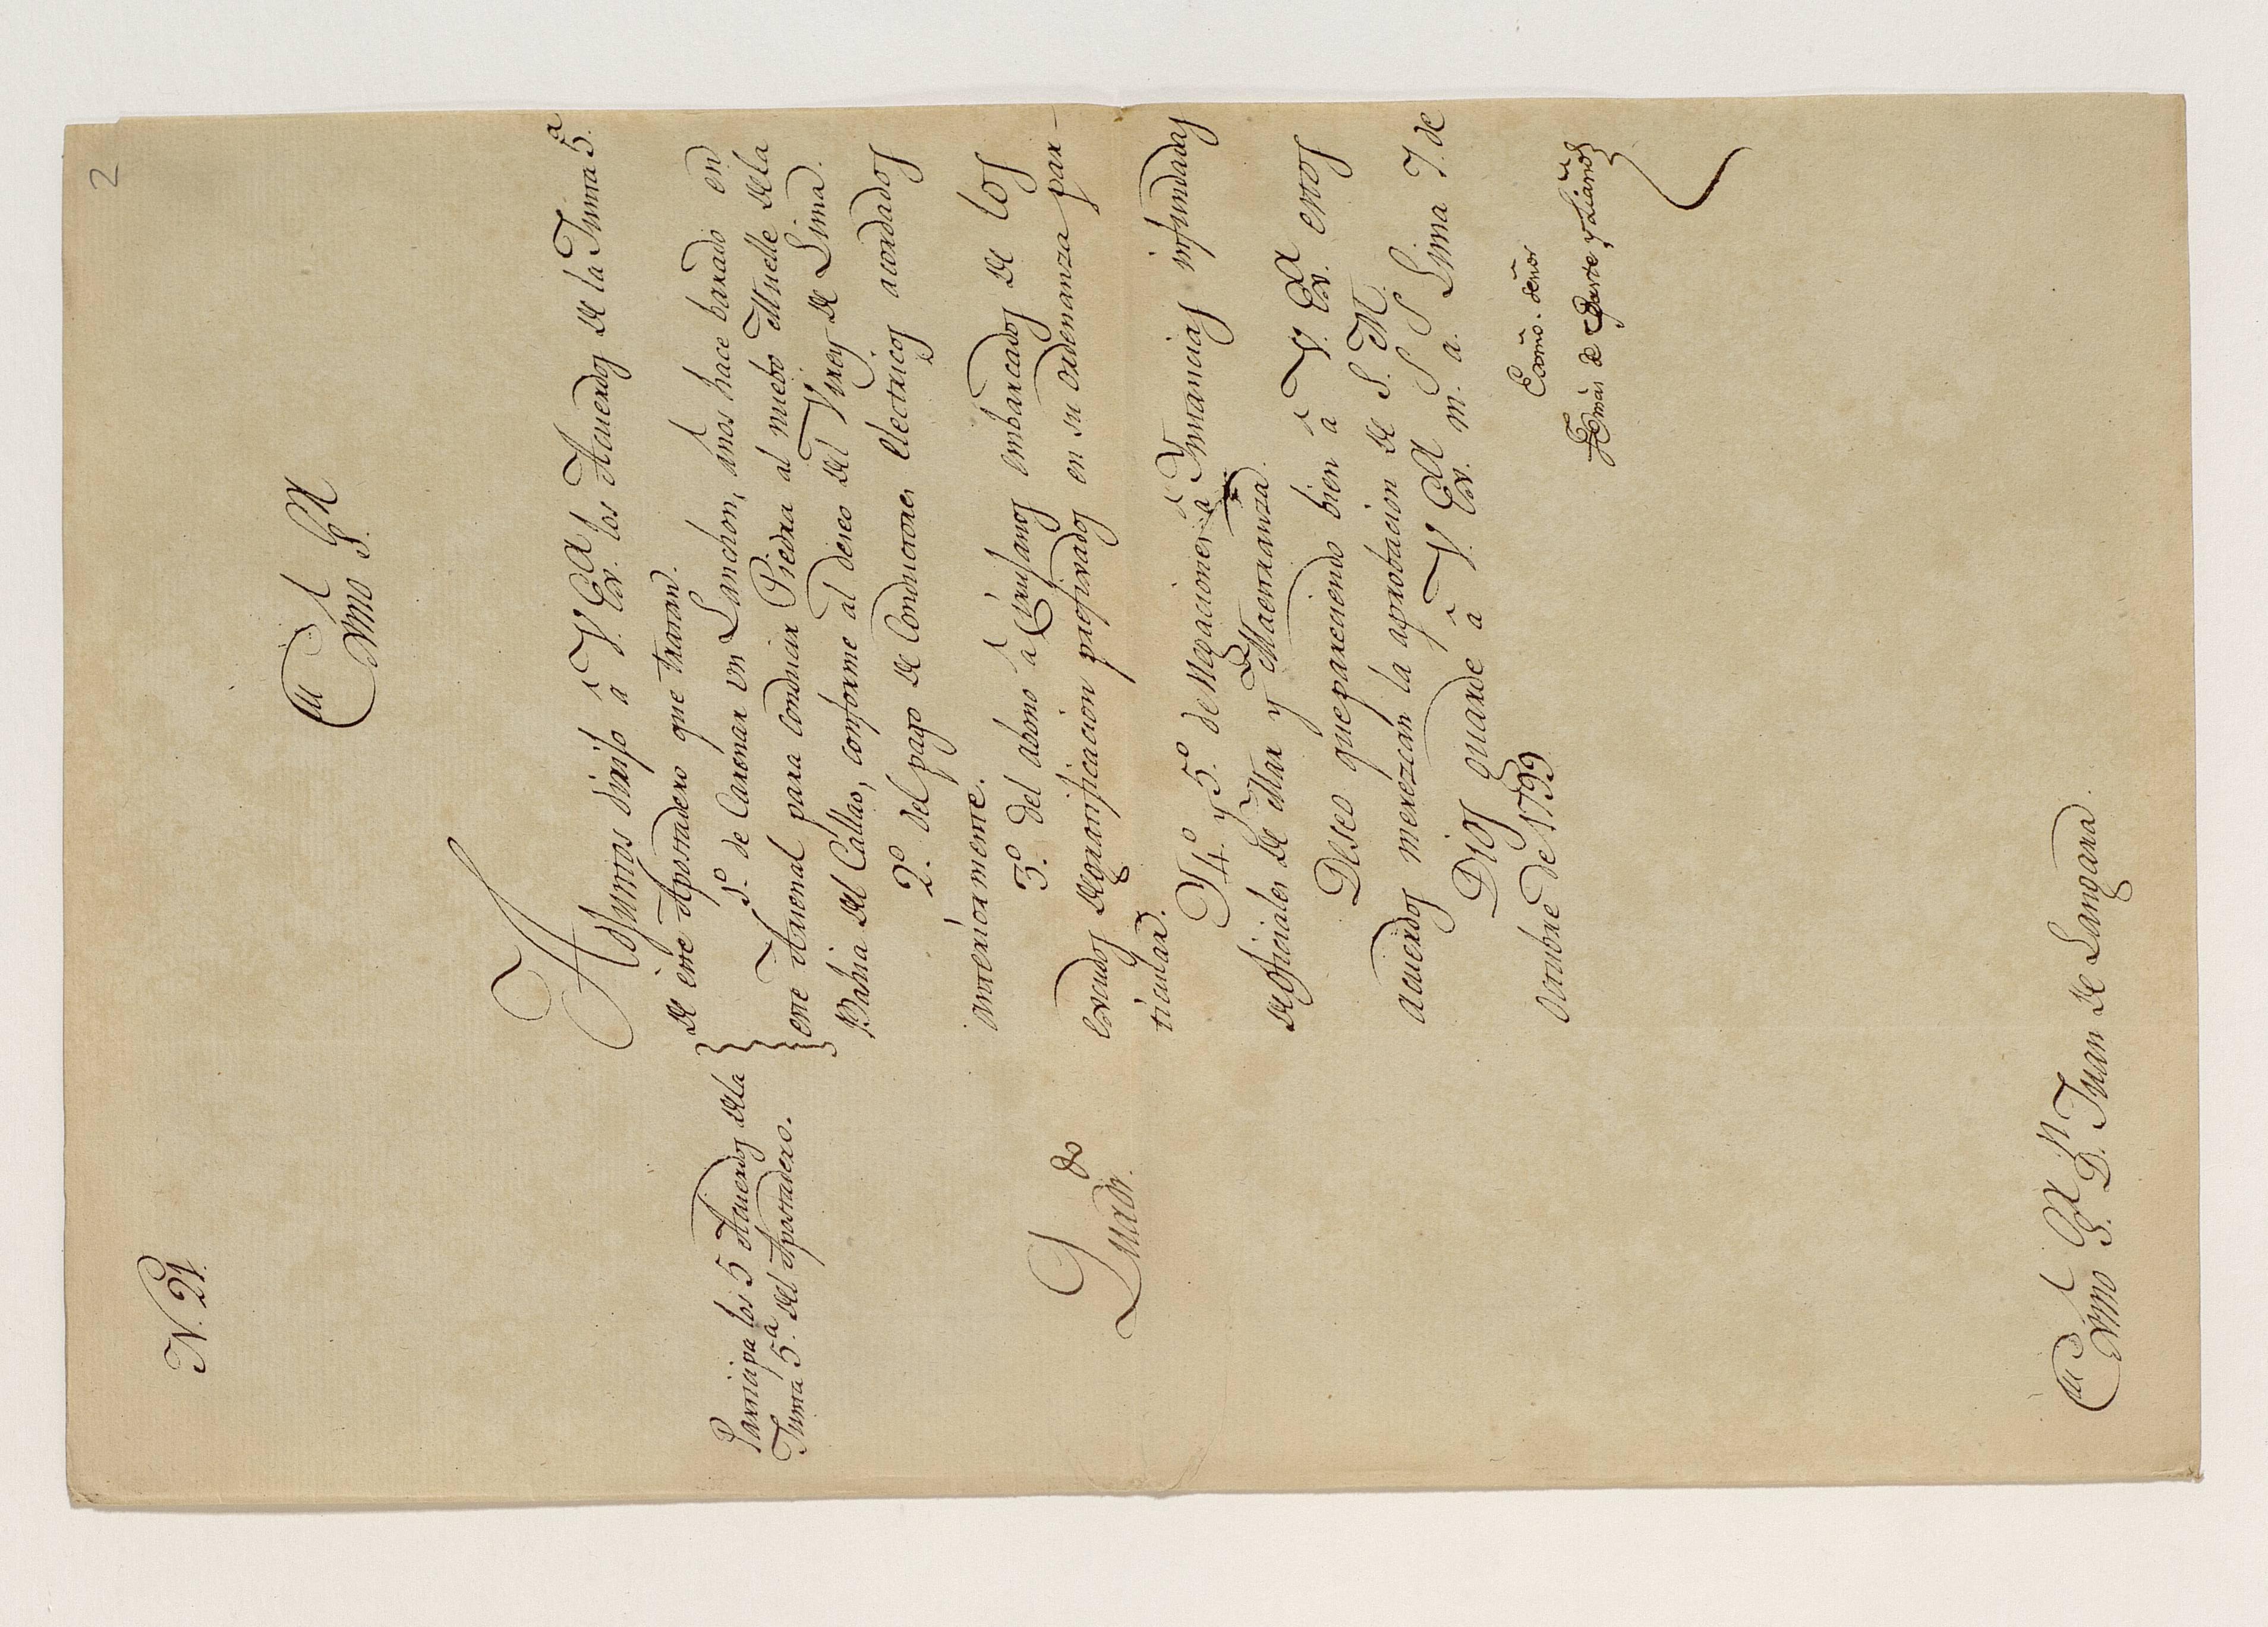 2
N. 21.
Exmo. S.or
Participa los 5 Acuerdos dela
Junta 5.a del Apostadero.
Adjuntos dirijo â V. Ex.a los Acuerdos de la Junta 5.a
de este Apostadero que tratan.
1.o de Carenar un Lanchon, años hace barado en
este Arsenal para conducir Piedra al nuebo Muelle dela
Bahia del Callao, conforme al deseo del Virey de Lima.
2.o del pago de Conductores electricos acordados
anteriormente.
3.o del abono â Cirujanos embarcados de los
escudos degratificacion prefixados en su ordenanza par-
ticular.
Y 4.o y 5.o de Negaciones â Ynstancias infundadas
de Oficiales de Mar y Maestranza.
Deseo que pareciendo bien â V. Ex.a estos
acuerdos merezcan la aprobacion de S. M.
Dios guarde â V. Ex.a m. a. Lima 7. de
octubre de 1799
Exmo. señor
Tomàs de Ugarte y Liaño
Exmo S.or D.n Juan de Langara.